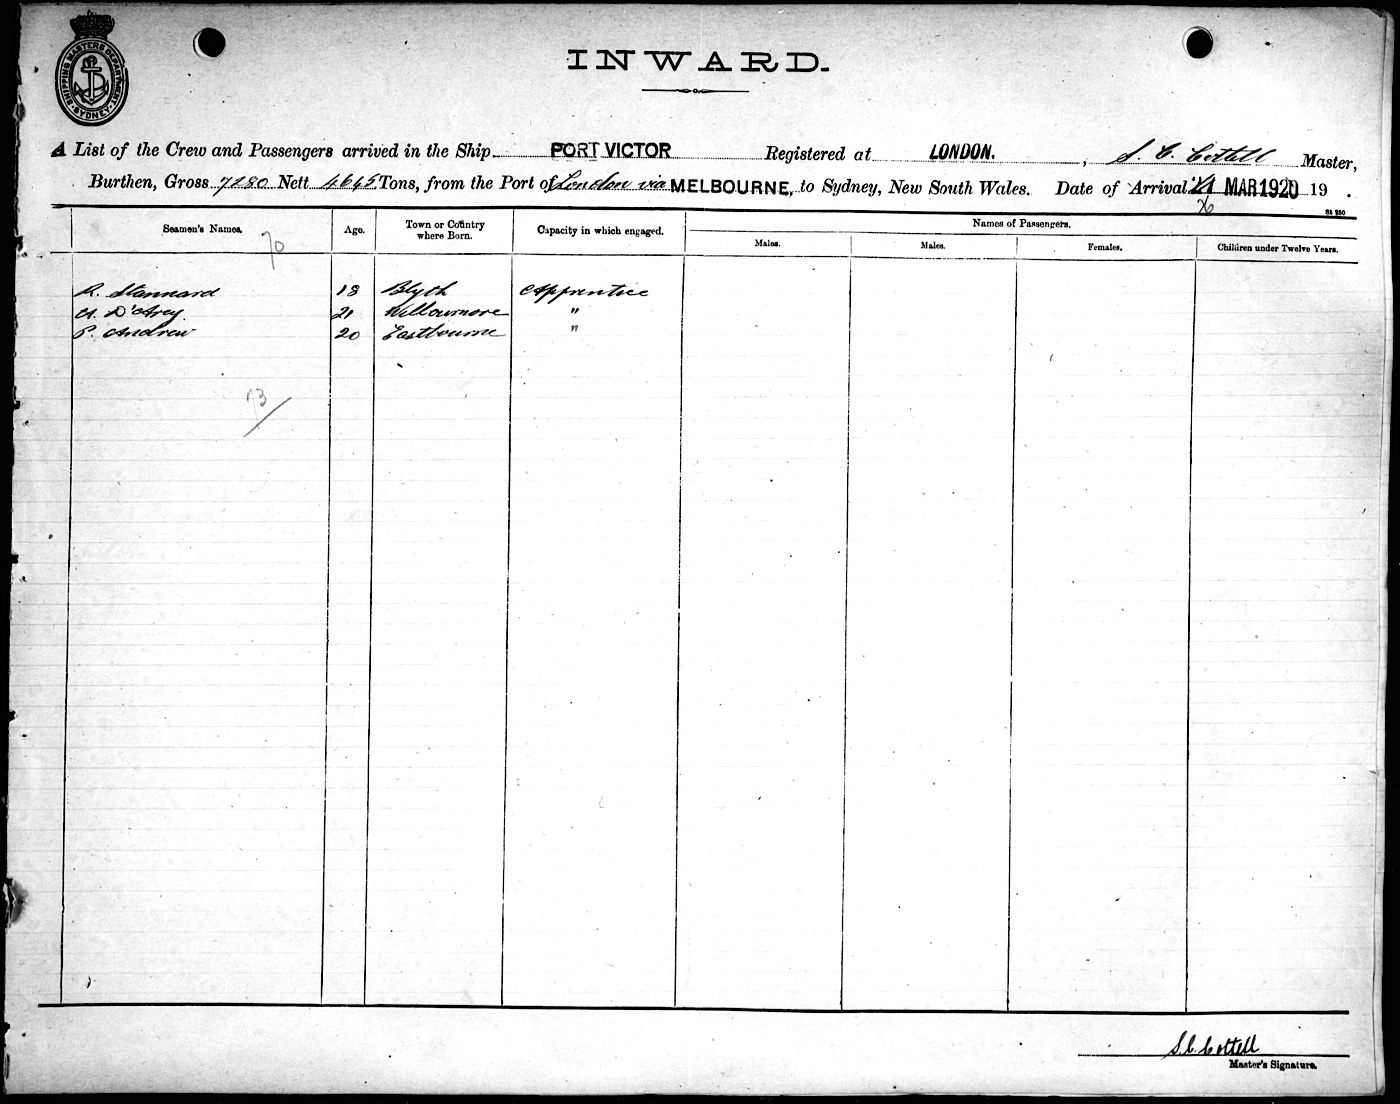 SHIPPING MASTERS DEPARTMENT SYDNEY
INWARD.
A List of the Crew and Passengers arrived in the Ship PORT VICTOR Registered at LONDON. , S. C. Cottell Master,
Burthen, Gross 7280 Nett 4645 Tons, from the Port of London via MELBOURNE, to Sydney, New South Wales. Date of Arrival MAR 1920 19 .
Seamen's Names. Age. Town or Country where Born. Capacity in which engaged. Names of Passengers.
Males. Males. Females. Children under Twelve Years.
70
R. Stannard 18 Blyth Apprentice
A. D'Arcy 21 Willowmore "
P. Andrew 20 Eastbourne "
73
S. C. Cottell
Master's Signature.